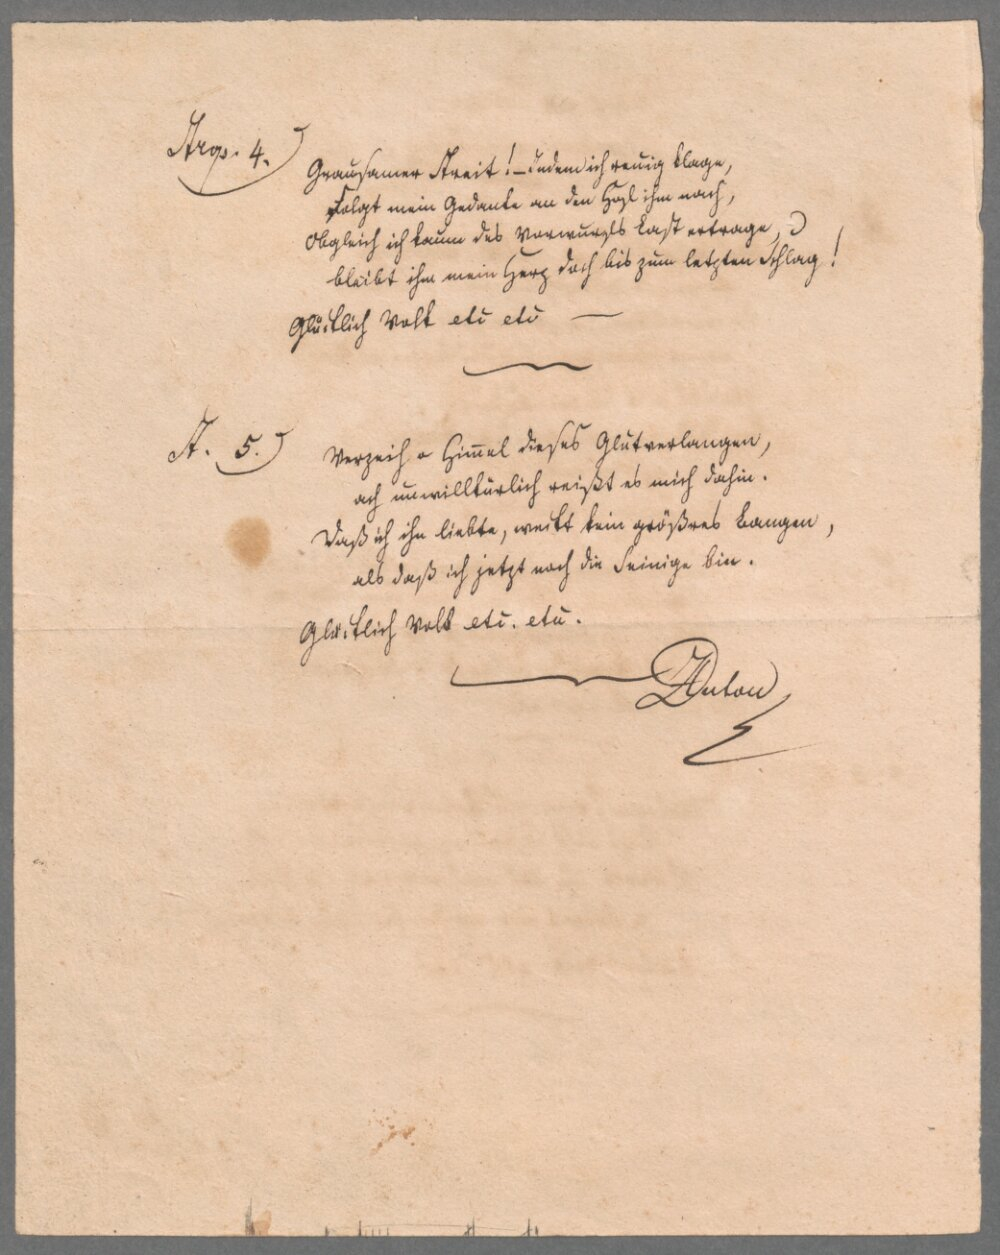 Strop. 4.)
Grausamer Streit! – Indem ich reuig klage,
folgt mein Gedanke an den ihm nach,
Obgleich ich kaum des Vorwurfs Last ertrage,
bleibt ihm mein Herz doch bis zum letzten Schlag!
Glücklich Volk etc etc —
St. 5.)
Verzeih o Him̅el dieses Glutverlangen,
ach unwillkürlich reißt es mich dahin.
Daß ich ihn liebte, weckt kein größres Bangen,
als daß ich jetzt noch die Seinige bin.
Glücklich Volk etc. etc.
Anton